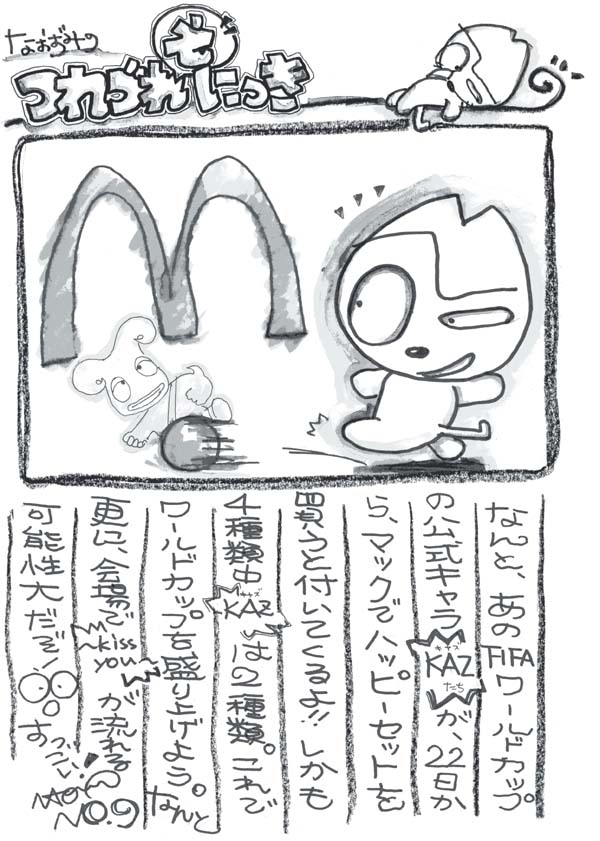 つれづれ
にっき
M
なんと、あのFIFAワールドカップ
の公式キャラKAZたちが、22日か
キャズ
ら、マックでハッピーセットを
買うと付いてくるよ!!しかも
4種類中KAZは2種類。これで
キャズ
ワールドカップを盛り上げよう。なんと
更に、会場でkiss youが流れる
可能性大だぞ!すっごい!
NO.9